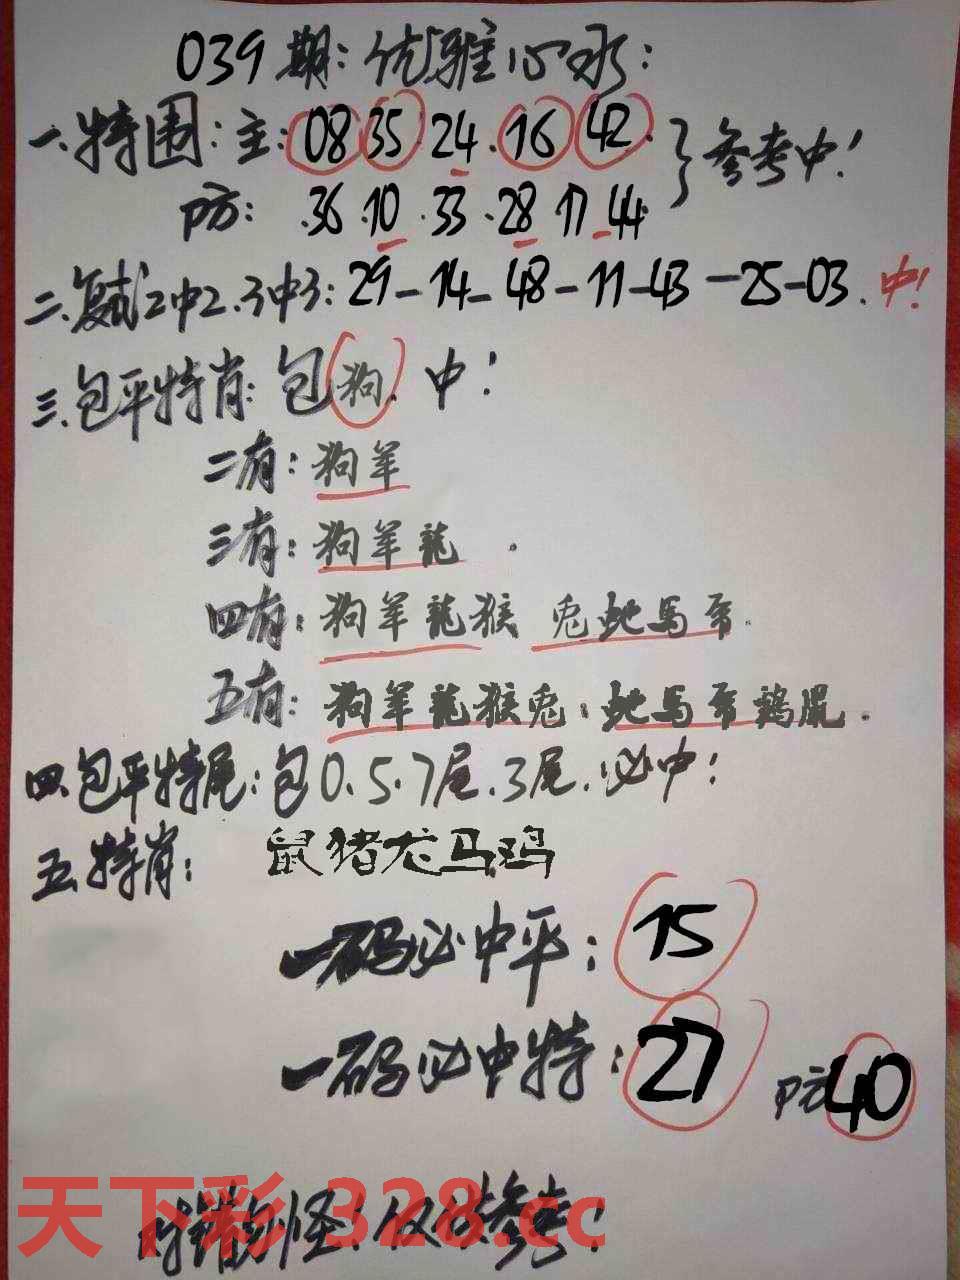 039期：优雅心水：
一.特围：主：08 35 24.16 42. }参考中！
防：.36.10.33.28 17 44.
二.复试2中2.3中3：29-14-48-11-43-25-03.中！
三.包平特肖：包狗.中！
二有：狗羊
三有：狗羊龍.
四有：狗羊龍猴 兔蛇馬
五有：狗羊龍猴兔：蛇馬
四.包平特尾：包0.5.7尾.3尾.必中！
五.特肖：鼠猪龙马鸡
一码必中平：15
一码必中特：27 防40
对错勿怪！仅供参考！
天下彩 328.cc